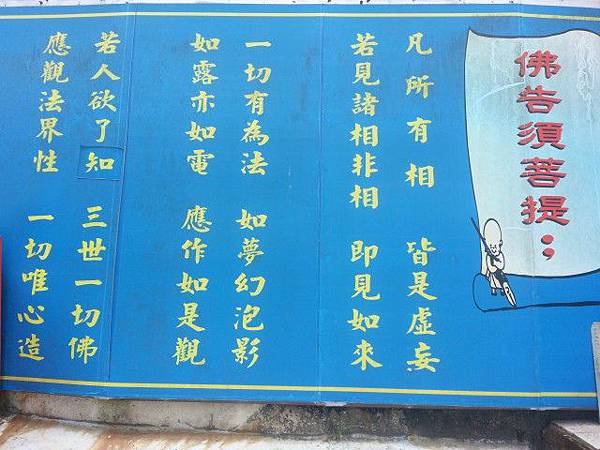 佛告須菩提；
凡所有相　皆是虛妄
若見諸相非相　即見如來
一切有為法　如夢幻泡影
如露亦如電　應作如是觀
若人欲了知　三世一切佛
應觀法界性　一切唯心造